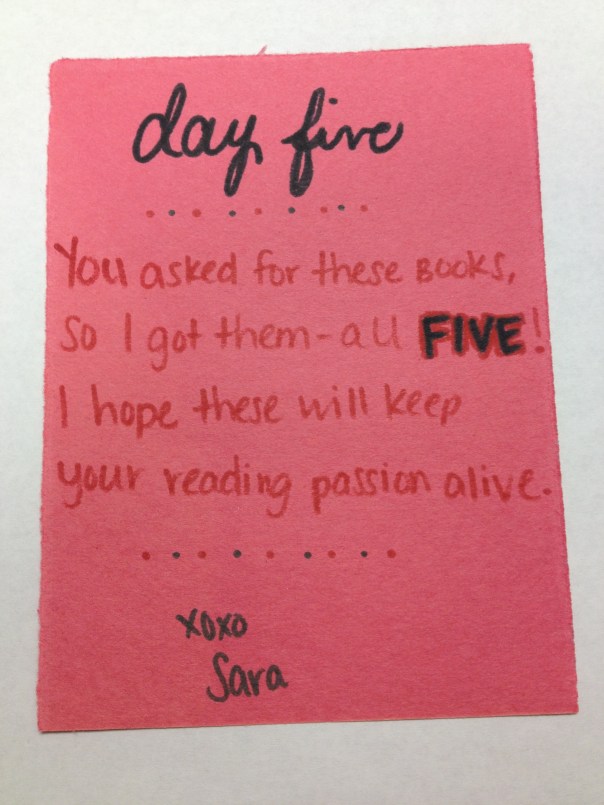 day five
You asked for these BOOKS,
So I got them - all FIVE!
I hope these will keep
your reading passion alive.
xoxo
Sara